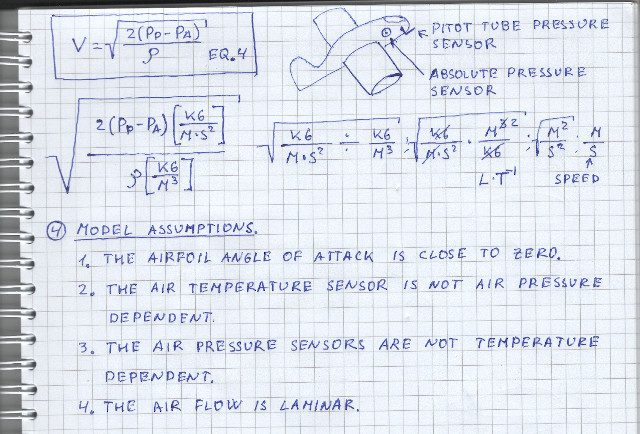 V = √(2(Pp-PA)/ρ) EQ.4
PITOT TUBE PRESSURE
SENSOR
ABSOLUTE PRESSURE
SENSOR
√(2(Pp-PA)[KG/M·S²] / ρ[KG/M³])
√(KG/M·S² ÷ KG/M³) ; √(KG/M·S² · M³ ²/KG) ; √(M²/S²) ; M/S
L·T⁻¹ SPEED
④ MODEL ASSUMPTIONS.
1. THE AIRFOIL ANGLE OF ATTACK IS CLOSE TO ZERO.
2. THE AIR TEMPERATURE SENSOR IS NOT AIR PRESSURE
DEPENDENT.
3. THE AIR PRESSURE SENSORS ARE NOT TEMPERATURE
DEPENDENT.
4. THE AIR FLOW IS LAMINAR.